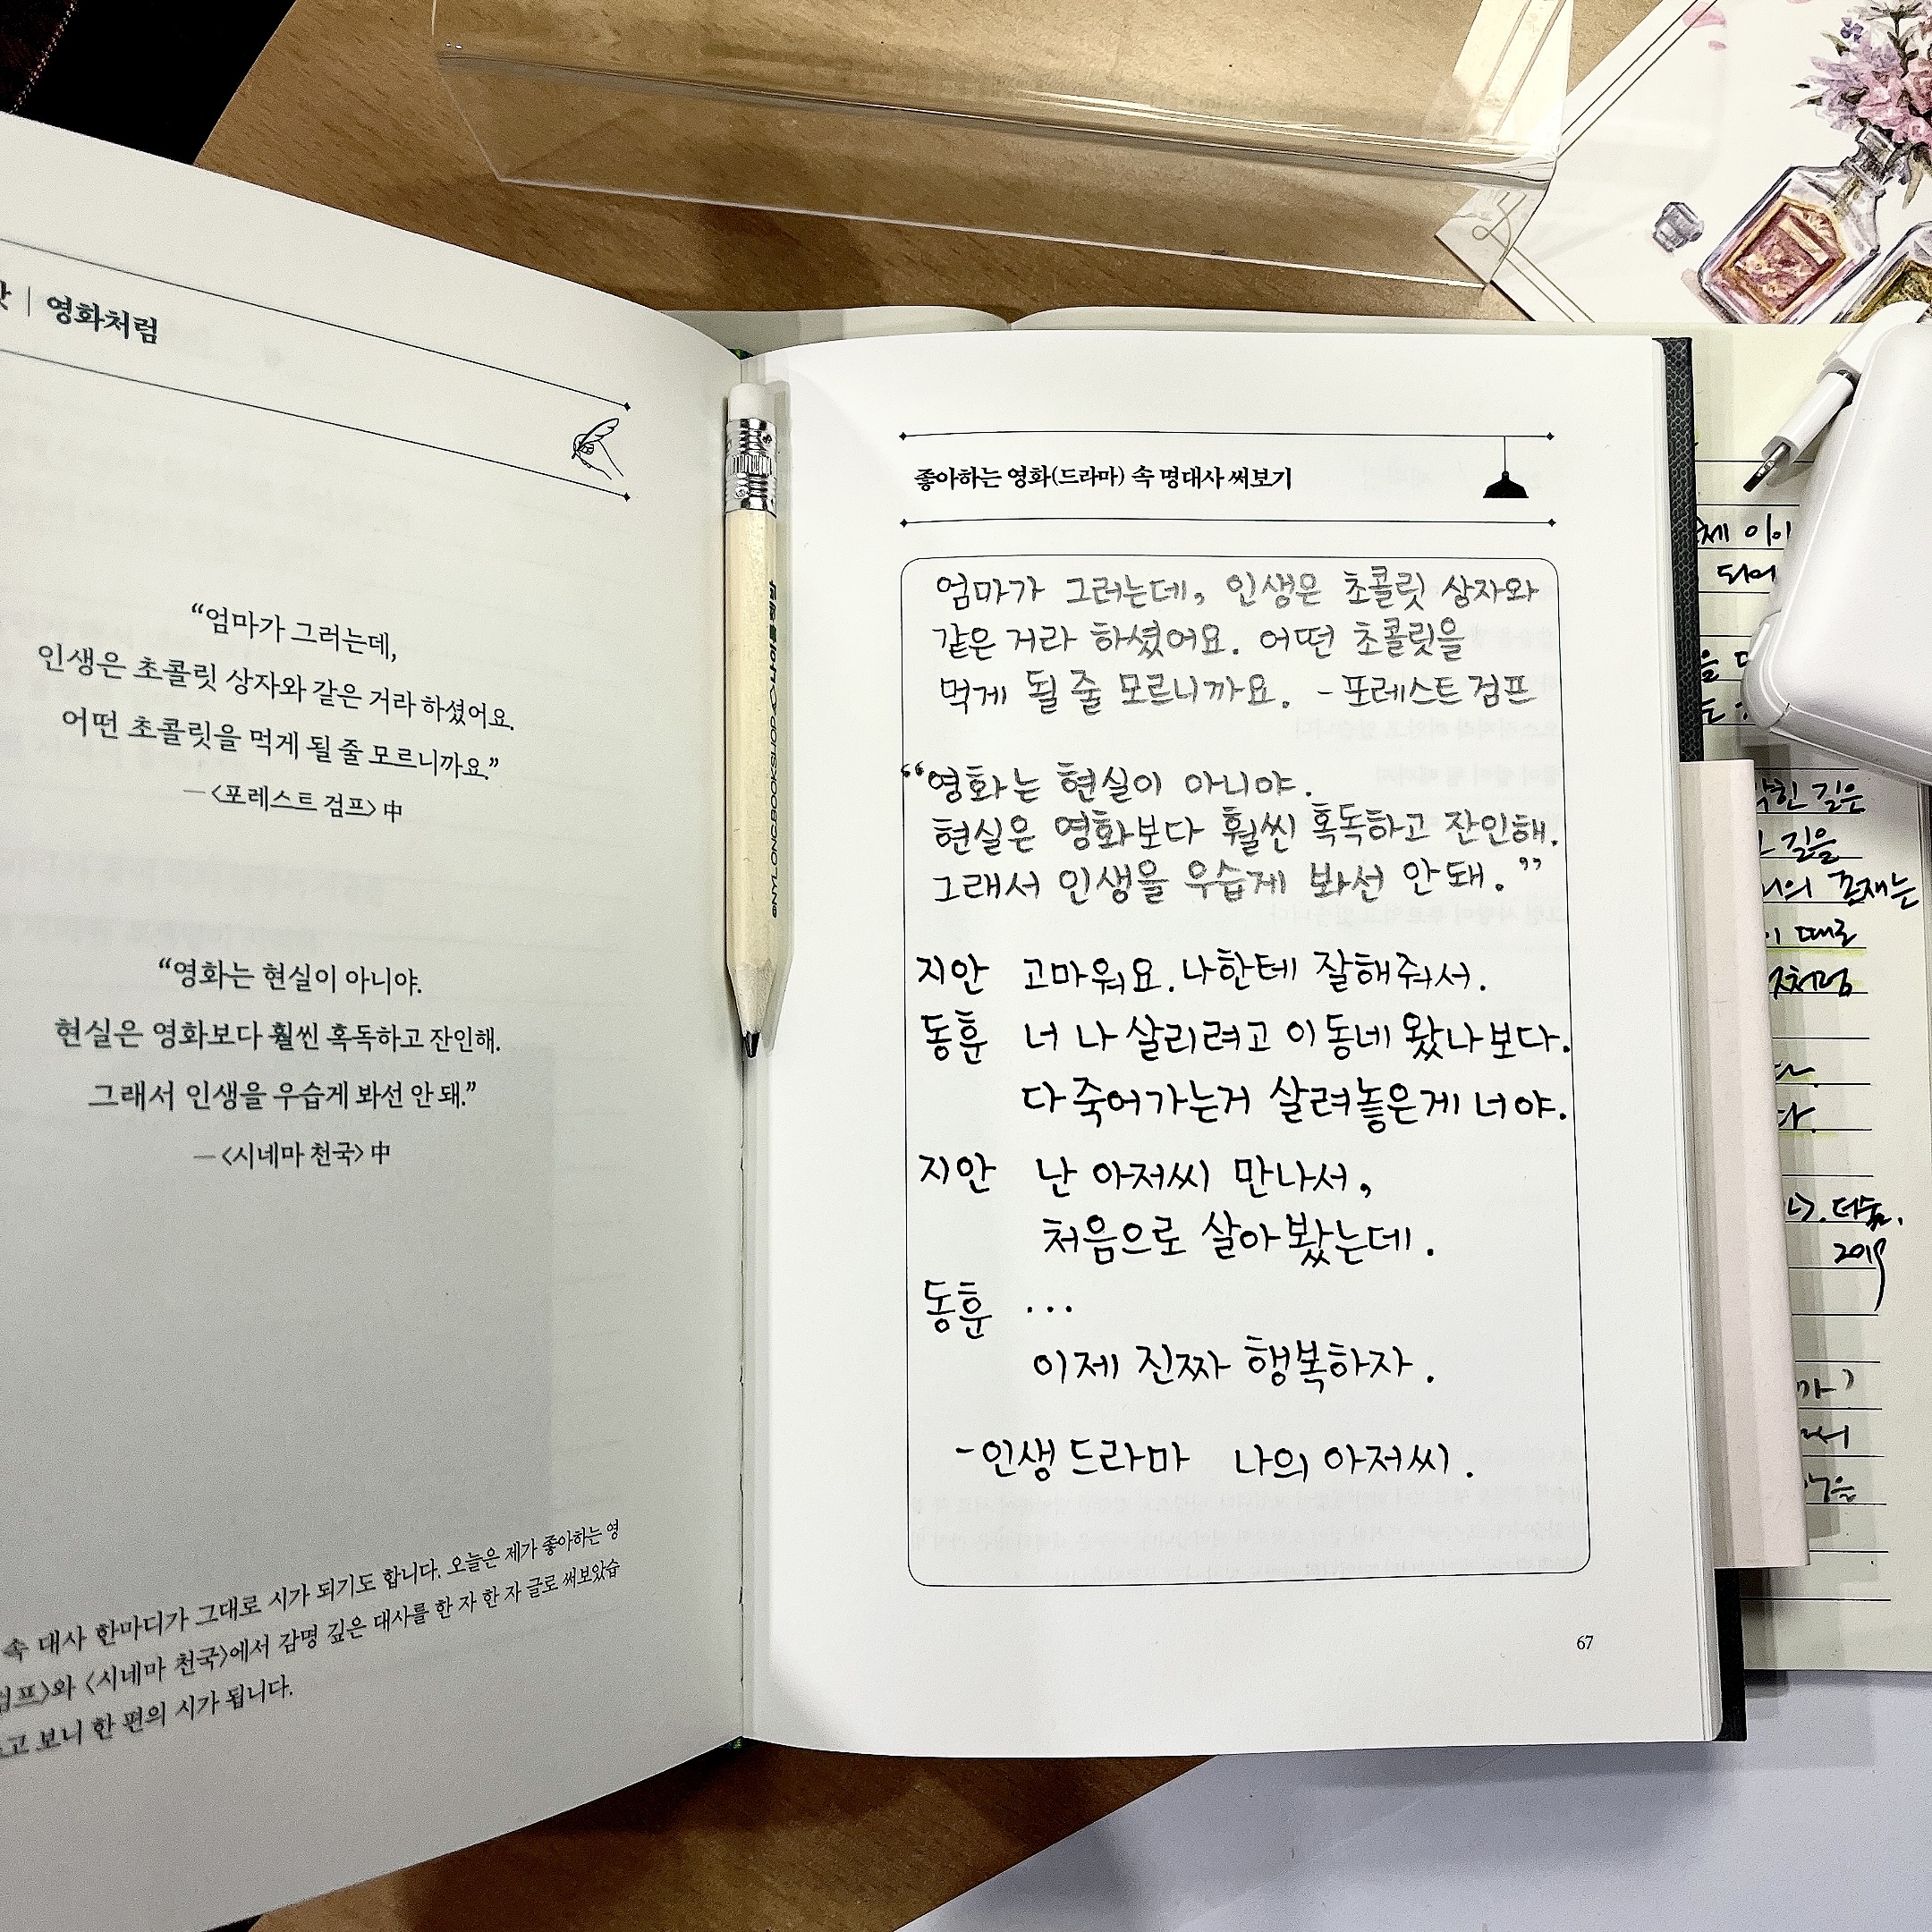 영화처럼
“엄마가 그러는데,
인생은 초콜릿 상자와 같은 거라 하셨어요.
어떤 초콜릿을 먹게 될 줄 모르니까요.”
—〈포레스트 검프〉 中
“영화는 현실이 아니야.
현실은 영화보다 훨씬 혹독하고 잔인해.
그래서 인생을 우습게 봐선 안 돼.”
—〈시네마 천국〉 中
속 대사 한마디가 그대로 시가 되기도 합니다. 오늘은 제가 좋아하는 영
검프〉와 〈시네마 천국〉에서 감명 깊은 대사를 한 자 한 자 글로 써보았습
고 보니 한 편의 시가 됩니다.
좋아하는 영화(드라마) 속 명대사 써보기
엄마가 그러는데, 인생은 초콜릿 상자와
같은 거라 하셨어요. 어떤 초콜릿을
먹게 될 줄 모르니까요. - 포레스트 검프
“영화는 현실이 아니야.
현실은 영화보다 훨씬 혹독하고 잔인해.
그래서 인생을 우습게 봐선 안 돼.”
지안 고마워요. 나한테 잘해줘서.
동훈 너 나 살리려고 이 동네 왔나 보다.
다 죽어가는거 살려놓은게 너야.
지안 난 아저씨 만나서,
처음으로 살아 봤는데.
동훈 ...
이제 진짜 행복하자.
- 인생 드라마 나의 아저씨.
67
되어
갇은
길을
존재는
때로
처럼
2019